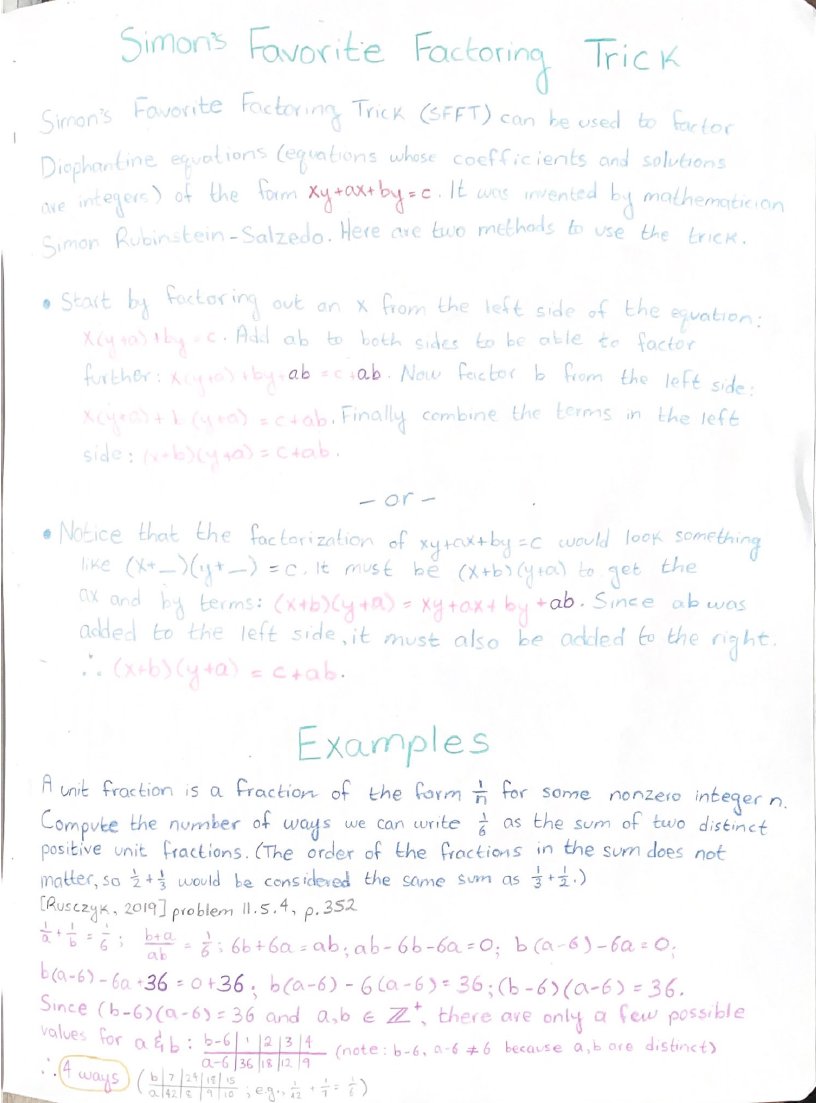 Simon's Favorite Factoring Trick
Simon's Favorite Factoring Trick (SFFT) can be used to factor
Diophantine equations (equations whose coefficients and solutions
are integers) of the form xy+ax+by=c. It was invented by mathematician
Simon Rubinstein-Salzedo. Here are two methods to use the trick.
• Start by factoring out an x from the left side of the equation:
x(y+a)+by=c. Add ab to both sides to be able to factor
further: x(y+a)+by+ab=c+ab. Now factor b from the left side:
x(y+a)+b(y+a)=c+ab. Finally combine the terms in the left
side: (x+b)(y+a)=c+ab.
- or -
• Notice that the factorization of xy+ax+by=c would look something
like (x+_)(y+_)=c. It must be (x+b)(y+a) to get the
ax and by terms: (x+b)(y+a)=xy+ax+by+ab. Since ab was
added to the left side, it must also be added to the right.
∴ (x+b)(y+a)=c+ab.
Examples
A unit fraction is a fraction of the form 1/n for some nonzero integer n.
Compute the number of ways we can write 1/6 as the sum of two distinct
positive unit fractions. (The order of the fractions in the sum does not
matter, so 1/2+1/3 would be considered the same sum as 1/3+1/2.)
[Rusczyk, 2019] problem 11.5.4, p.352
1/a+1/b=1/6; (b+a)/ab=1/6; 6b+6a=ab; ab-6b-6a=0; b(a-6)-6a=0;
b(a-6)-6a+36=0+36; b(a-6)-6(a-6)=36; (b-6)(a-6)=36.
Since (b-6)(a-6)=36 and a,b ∈ ℤ⁺, there are only a few possible
values for a & b: b-6 | 1 | 2 | 3 | 4
a-6 | 36 | 18 | 12 | 9 (note: b-6, a-6 ≠ 6 because a,b are distinct)
∴ 4 ways (b | 7 | 24 | 18 | 15
a | 42 | 8 | 9 | 10 ; e.g., 1/42+1/7=1/6)